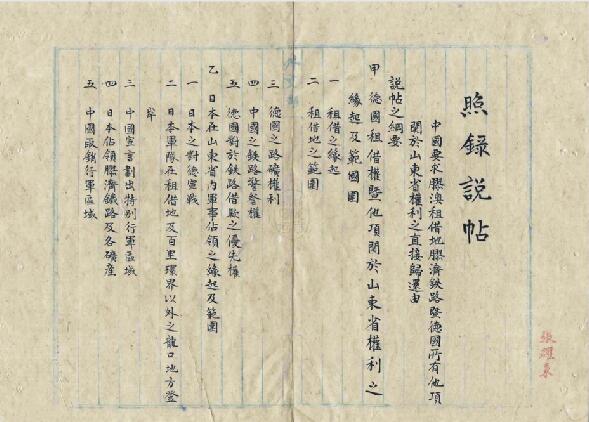 照錄說帖
中國要求膠澳租借地膠濟鉄路曁德國所有他項
關於山東省權利之直接歸還由
說帖之綱要
甲 德國租借權曁他項關於山東省權利之
緣起及範圍
一 租借之緣起
二 租借地之範圍
三 德國之路礦權利
四 中國之鉄路警察權
五 德國對於鉄路借款之優先權
乙 日本在山東省內軍事佔領之緣起及範圍
一 日本之對德宣戰
二 日本軍隊在租借地及百里環界以外之龍口地方登
岸
三 中國宣言劃出特別行軍區域
四 日本佔領膠濟鉄路及各礦產
五 中國取銷行軍區域
張耀東